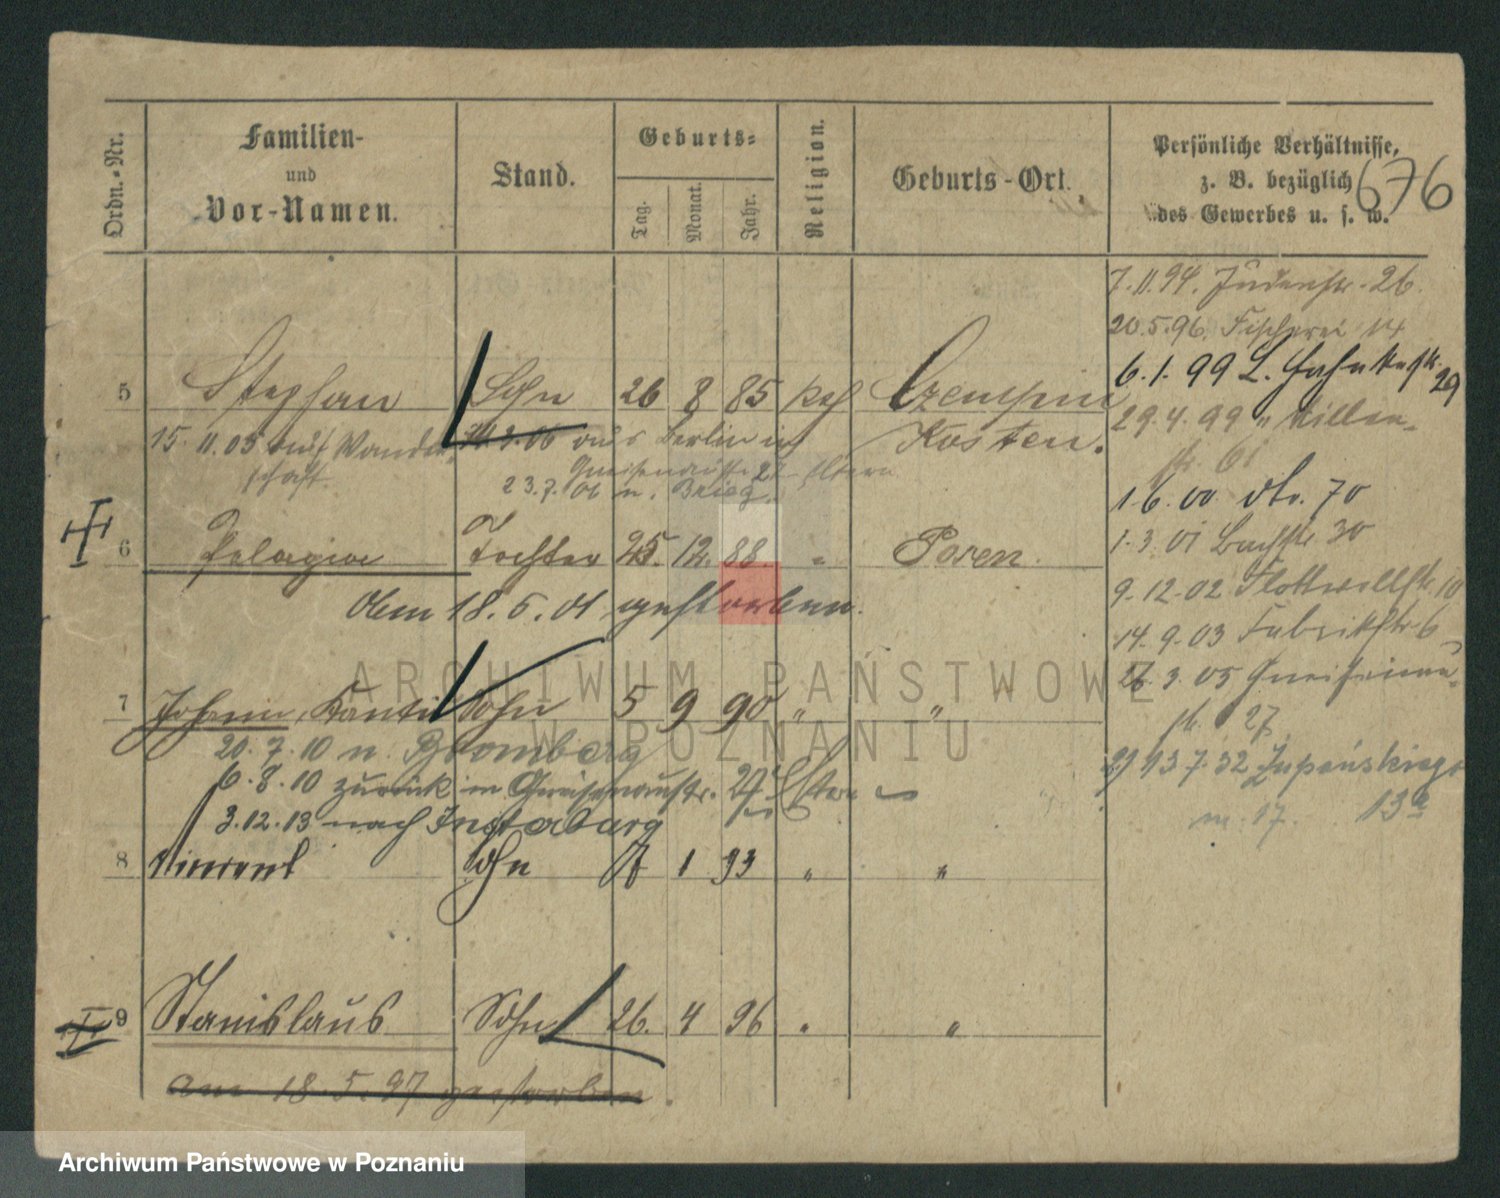 Ordn.-Nr.
Familien-
und
Vor-Namen.
Stand.
Geburts-
Tag.
Monat.
Jahr.
Religion.
Geburts-Ort.
Persönliche Verhältnisse,
z. B. bezüglich
des Gewerbes u. s. w.
676
7.11.94. Judenstr. 26.
20.5.96. Fischerei 14
6.1.99 29
29.4.99
1.6.00 70
1.3.01 Bachstr. 30
9.12.02 Flottwellstr. 10
14.9.03 Fabrikstr. 6
3.05 Gneisenau-
str. 27
13.7.32 Zupańskiego
m. 17. 13a
5 Stephan Sohn 26 8 85 kath Czempin
15. 11.05 auf Wander- 06 aus Berlin in Kosten.
schaft. Gneisenaustr. 27 Eltern
23.7.06 n. Brieg.
6 Pelagia Tochter 25. 12. 88 " Posen.
18.5.01 gestorben.
7 Johann Kanti Sohn 5 9 90 " "
20.7.10 n. Bromberg
6.8.10 zurück in Gneisenaustr. 27 Eltern
3.12.13 nach Insterburg
8 Vincent Sohn 1 93 " "
9 Stanislaus Sohn 26. 4 96 " "
am 18.5.97 gestorben.
ARCHIWUM PAŃSTWOWE
W POZNANIU
Archiwum Państwowe w Poznaniu